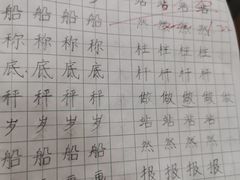 船船船船 站站站
称称称称 然然然
底底底底 柱柱柱
秤秤秤秤 杆杆杆
岁岁岁岁 做做做做
船船船船 站站站站
然然然然
报报报报